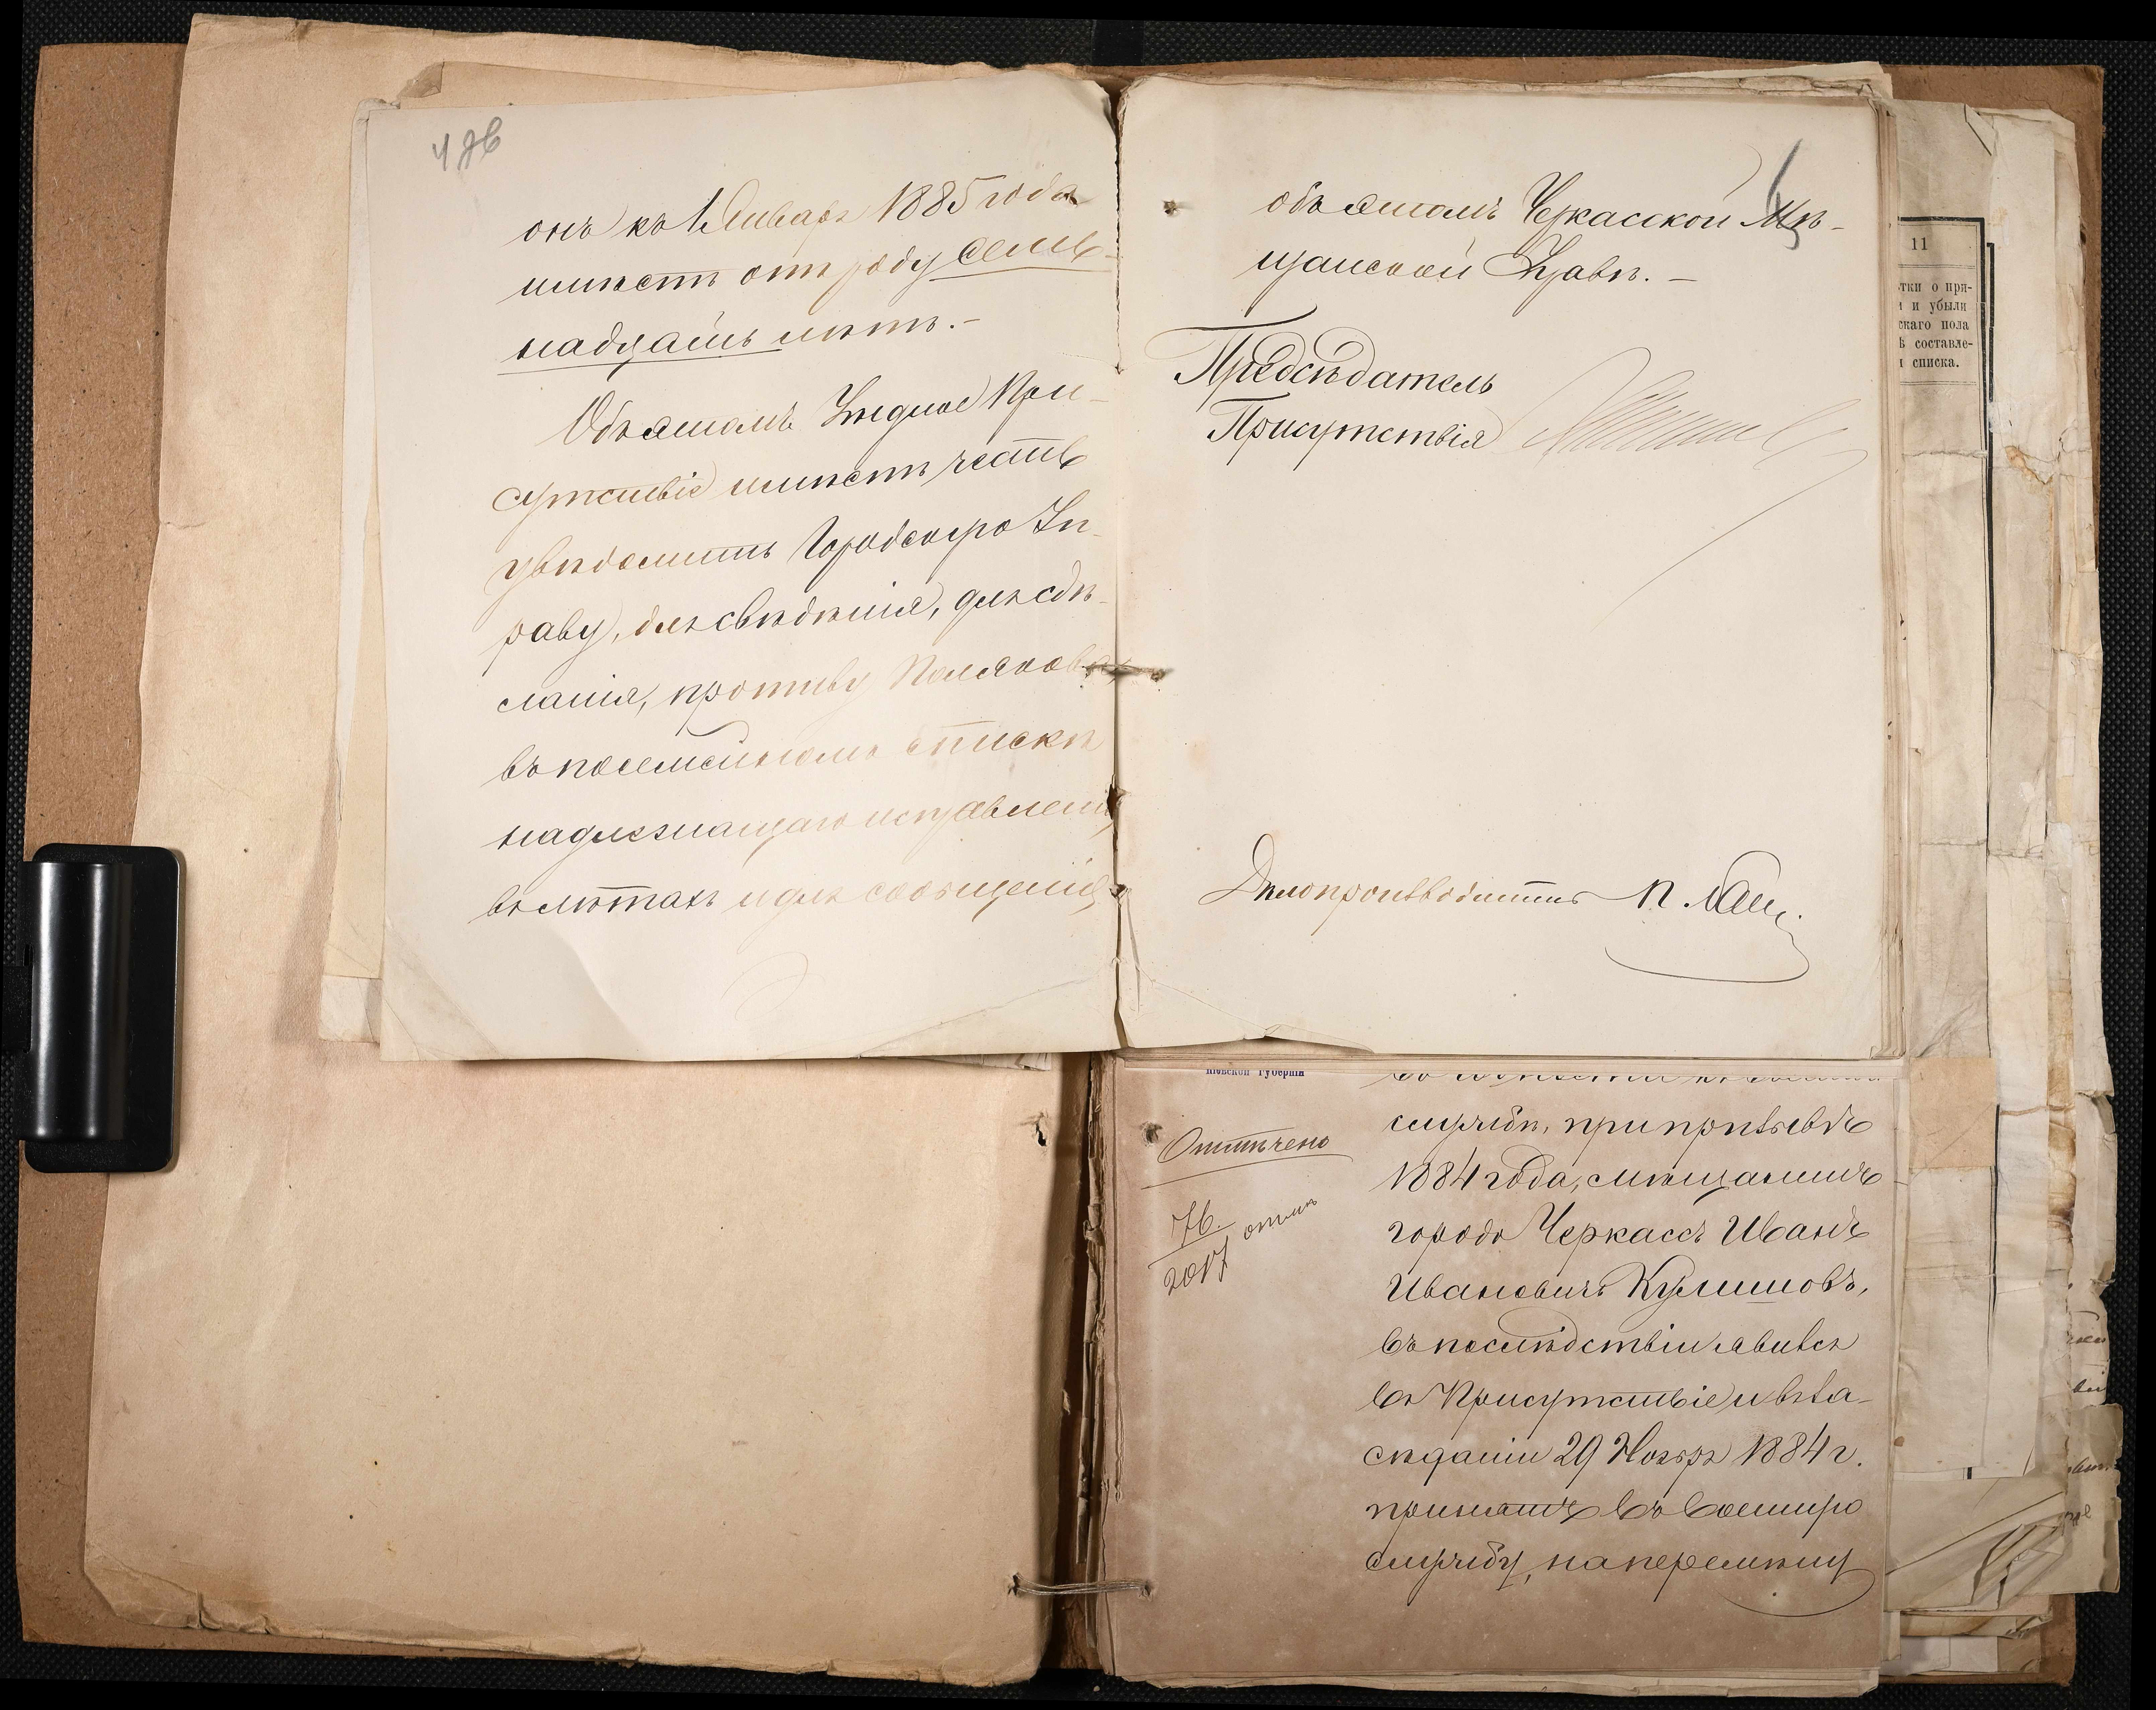 4 об
онъ къ 1 Января 1885 года
имѣетъ отъ роду семь-
надцать лѣтъ.-
Объ этомъ Уѣздное При-
сутствіе имѣетъ честь
увѣдомить Городскую Уп-
раву, для свѣдѣнія, для сдѣ-
ланія, противу Полякова,
въ посемейномъ спискѣ
надлежащаго исправленія
въ лѣтахъ и для сообщенія
объ этомъ Черкасской Мѣ-
щанской Управѣ.-
Предсѣдатель
Присутствія
Дѣлопроизводитель П.
11
тки о при-
и убыли
скаго пола
ѣ составле-
списка.
Кіевской Губерніи
Отмѣчено
76.
2017
службѣ, при призывѣ
1884 года, мѣщанинъ
города Черкассъ Иванъ
Ивановичъ Кулишовъ,
въ послѣдствіи явился
въ Присутствіе и въ за-
сѣданіи 29 Ноября 1884 г.
принятъ въ военную
службу, на перемѣну